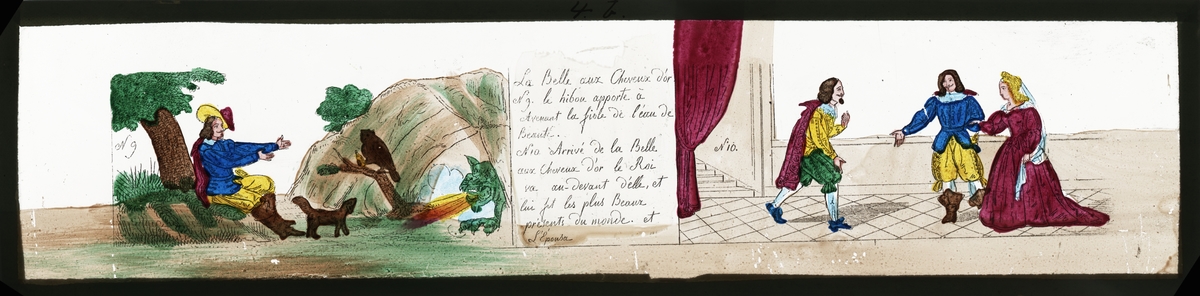 4. 7.
N 9
La Belle aux Cheveux d'or
N 9. le hibou apporte à
Avenant la fiole de l'eau de
Beauté.
N 10 Arrivé de la Belle
aux Cheveux d'or le Roi
va au-devant d'elle, et
lui fit les plus Beaux
présents du monde. et
l'Epousa
N 10.